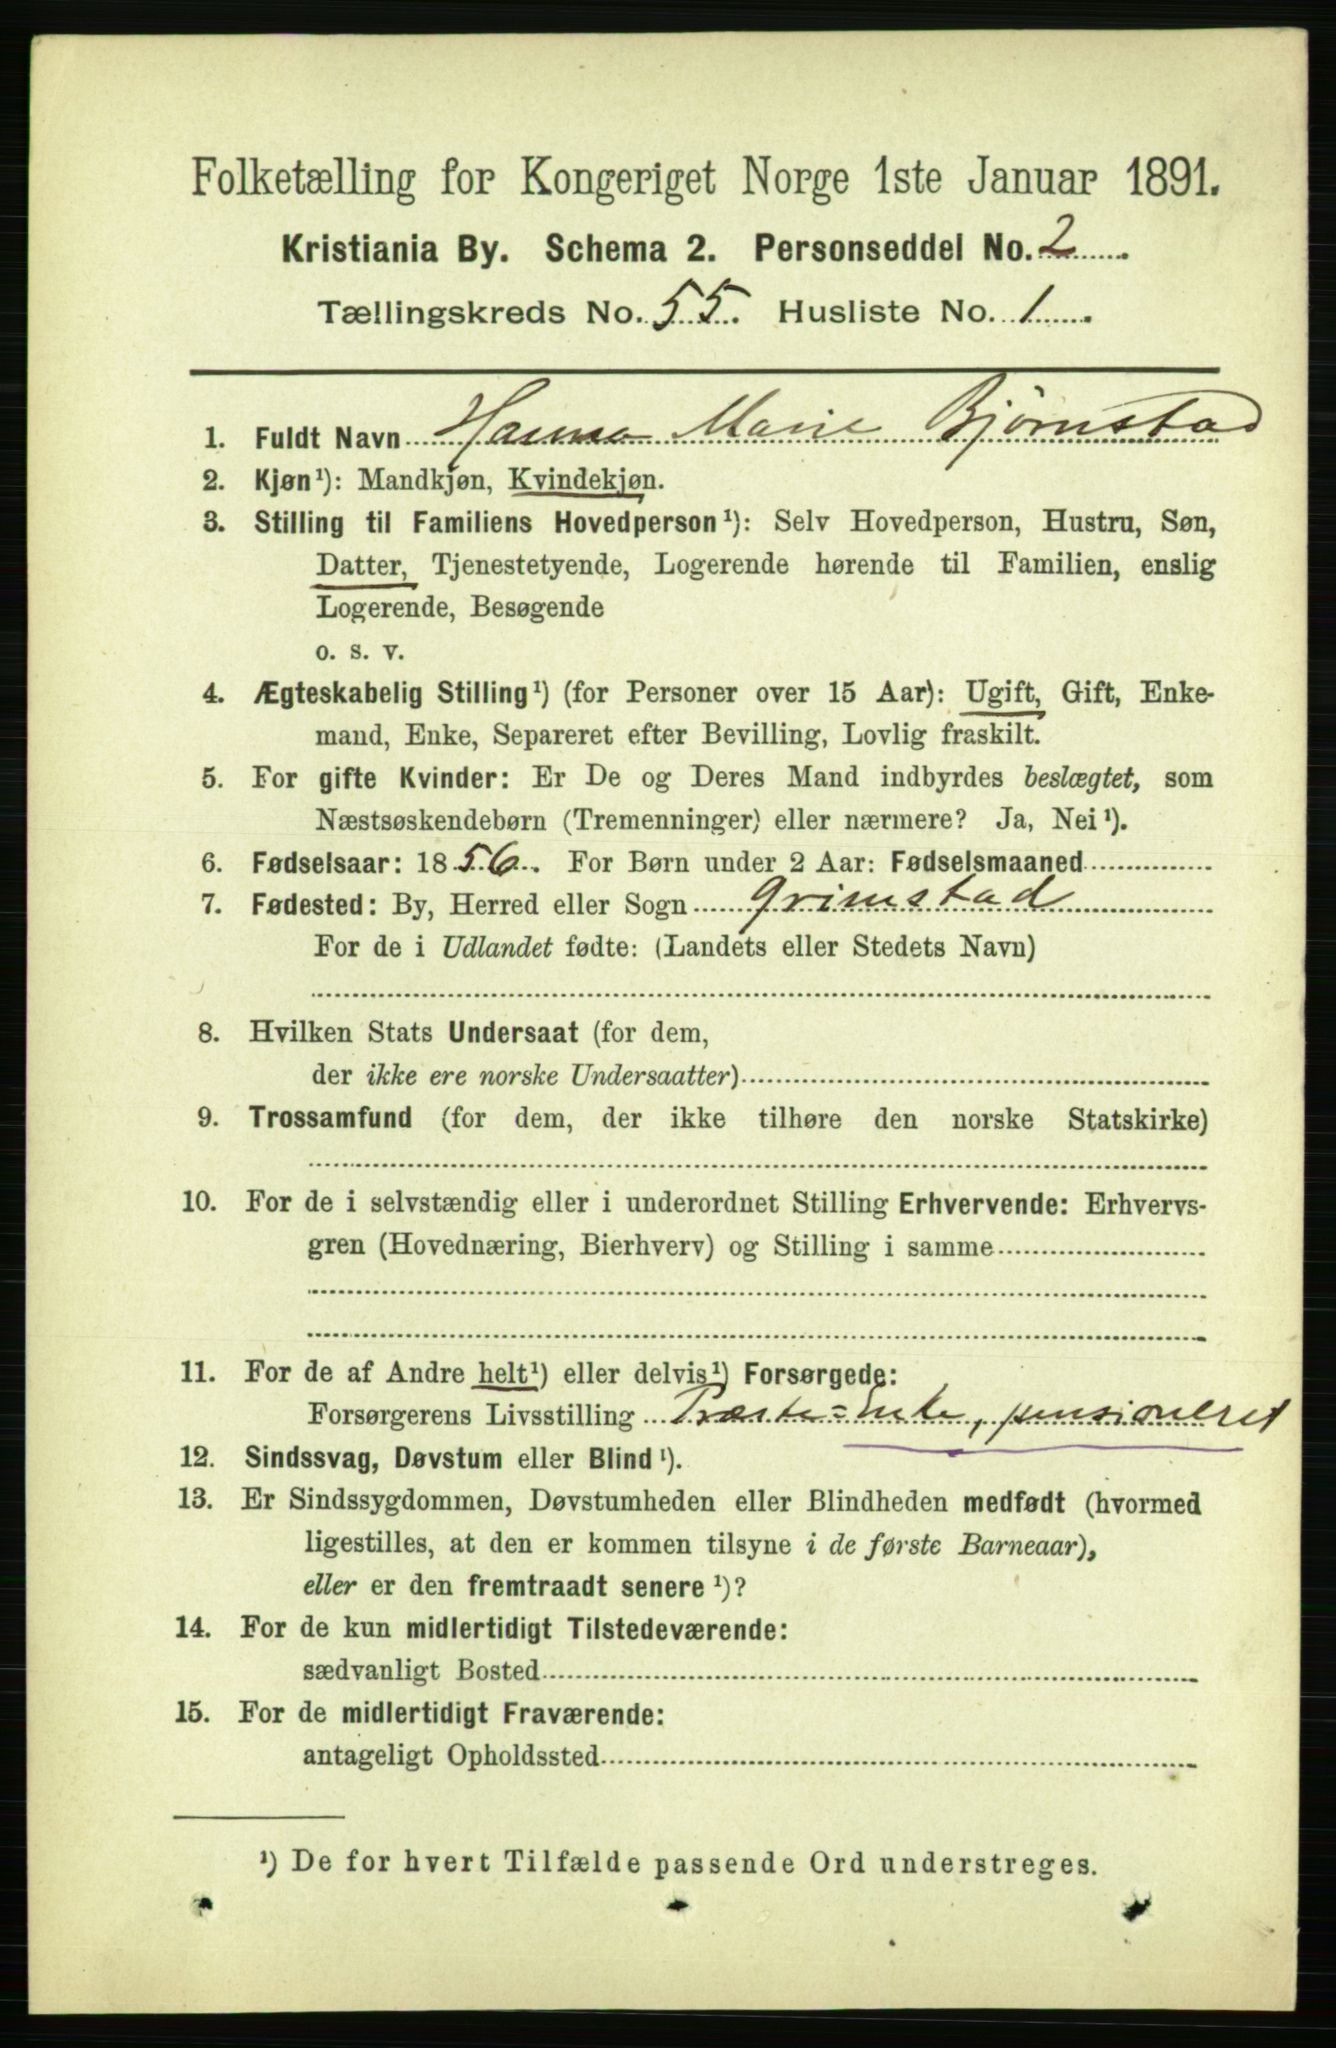 Folketælling for Kongeriget Norge 1ste Januar 1891.
Kristiania By. Schema 2. Personseddel No. 2
Tællingskreds No. 55. Husliste No. 1
1. Fuldt Navn Hanna Marie Bjørnstad
2. Kjøn¹): Mandkjøn, Kvindekjøn.
3. Stilling til Familiens Hovedperson¹): Selv Hovedperson, Hustru, Søn,
Datter, Tjenestetyende, Logerende hørende til Familien, enslig
Logerende, Besøgende
o. s. v.
4. Ægteskabelig Stilling¹) (for Personer over 15 Aar): Ugift, Gift, Enke-
mand, Enke, Separeret efter Bevilling, Lovlig fraskilt.
5. For gifte Kvinder: Er De og Deres Mand indbyrdes beslægtet, som
Næstsøskendebørn (Tremenninger) eller nærmere? Ja, Nei¹).
6. Fødselsaar: 1856. For Børn under 2 Aar: Fødselsmaaned
7. Fødested: By, Herred eller Sogn Grimstad
For de i Udlandet fødte: (Landets eller Stedets Navn)
8. Hvilken Stats Undersaat (for dem,
der ikke ere norske Undersaatter)
9. Trossamfund (for dem, der ikke tilhøre den norske Statskirke)
10. For de i selvstændig eller i underordnet Stilling Erhvervende: Erhvervs-
gren (Hovednæring, Bierhverv) og Stilling i samme
11. For de af Andre helt¹) eller delvis¹) Forsørgede:
Forsørgerens Livsstilling Præste=Enke, pensioneret
12. Sindssvag, Døvstum eller Blind¹).
13. Er Sindssygdommen, Døvstumheden eller Blindheden medfødt (hvormed
ligestilles, at den er kommen tilsyne i de første Barneaar),
eller er den fremtraadt senere¹)?
14. For de kun midlertidigt Tilstedeværende:
sædvanligt Bosted
15. For de midlertidigt Fraværende:
antageligt Opholdssted
¹) De for hvert Tilfælde passende Ord understreges.